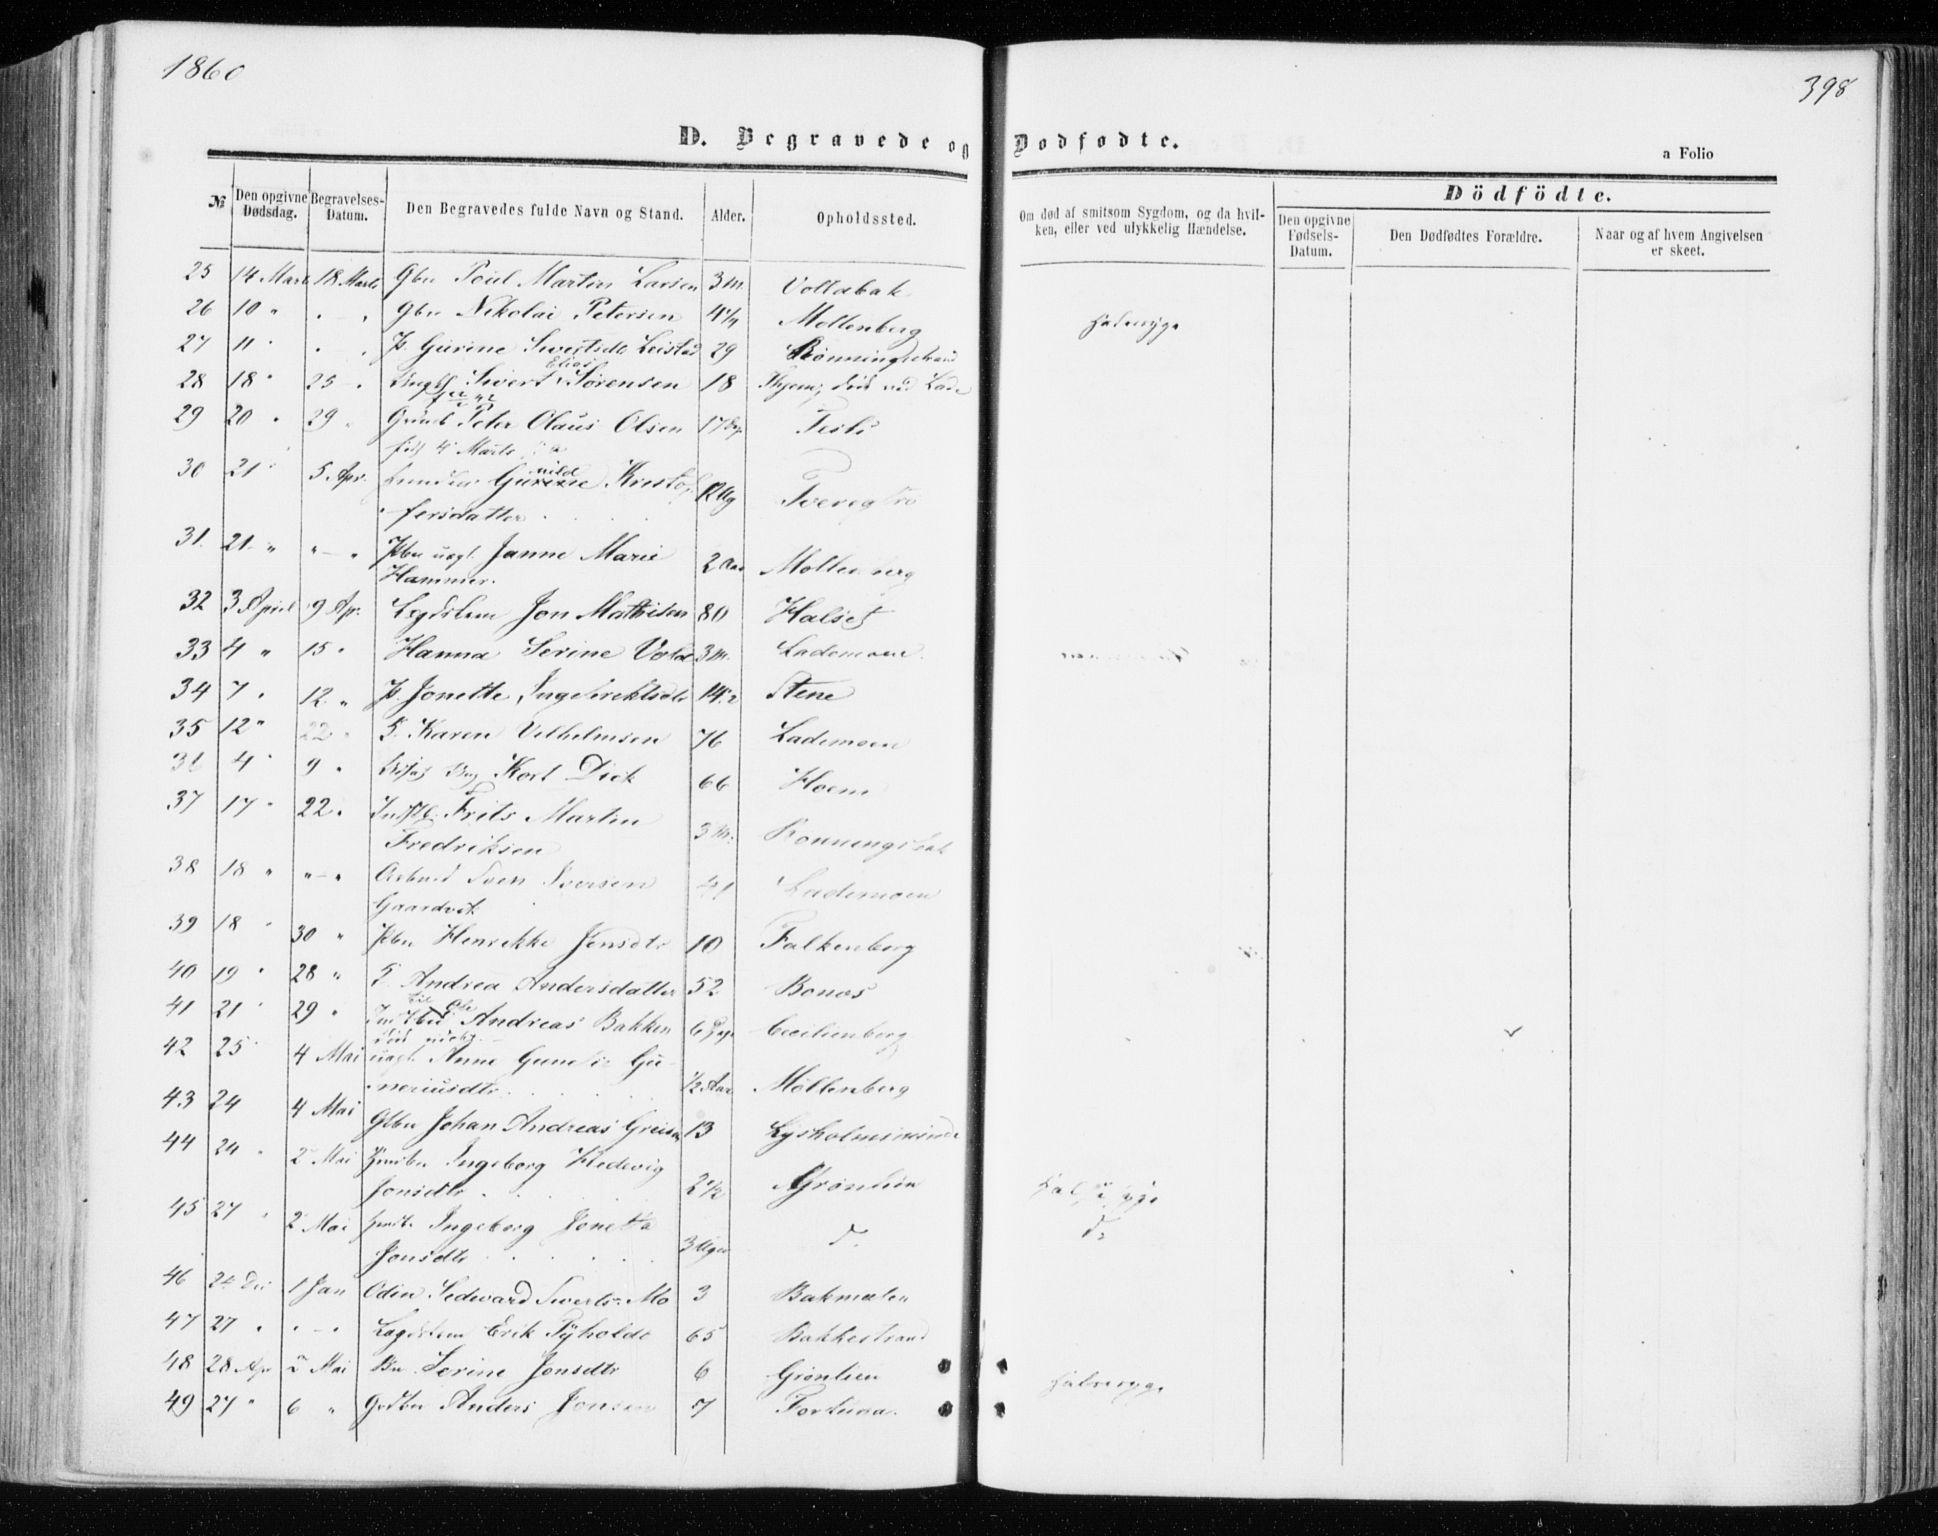 1860
398
D. Begravede og Dødfødte.
a Folio
№ Den opgivne Dødsdag. Begravelses-Datum. Den Begravedes fulde Navn og Stand. Alder. Opholdssted. Om død af smitsom Sygdom, og da hvilken, eller ved ulykkelig Hændelse. Dödfödte. Den opgivne Fødsels-Datum. Den Dødfødtes Forældre. Naar og af hvem Angivelsen er skeet.
25 14 Marts 18 Marts Gbn Poul Martin Larsen 3 M. Voldabak
26 10 " " - " Gbn Nikolai Petersen 4 1/4 Mollenberg Halssyge
27 11 " " " P. Gurine Sivertsdt Leistad 29 Rønningsstrand
28 18 " 25 - " Ungk Sivert Elias Sørensen 18 død ved Lade
29 20 " 29 " Peter Olaus Olsen 17 Dg.
fød 4 Marts
30 21 " 5 Apr. Kristof-
fersdatter 12 Ug
31. 21 " " - " Pbn uægt. Janne Marie
Hammer. 2 Aar Mollenberg
32 3 April 9 Ap. Lægdslem Jon Mathisen 80 Halset
33 4 " 15 " Hanna Serine Vold 3 M. Lademoen
34 7 " 12 " P. Jonette Ingebrektsdt 14 1/2 Stene
35 12 " 22 " E. Karen Vilhelmsen 76 Lademoen
36 4 " 9 " Kort Dick 66 Hoem
37 17 " 22 " Frits Martin
Fredriksen 3 M.
38 18 " " - " Arbmd Sven Iversen
Gaardvik 41 Lademoen
39 18 " 30 " Pbn Henrikke Jensdt 10 Falkenberg
40 19 " 28 " E. Andrea Andersdatter 52 Bonæs
41 21 " 29 " Ole Andreas Bakken 6 Dage Cecilienberg
42 25 " 4 Mai uægt. Anne Gu-
neriusdt 1/2 Aar Möllenberg
43 24 4 Mai Gbn Johan Andreas 13 Lysholmsminde
44 24 " 2 Mai Ingeborg Hedevig
Jonsdt 2 1/2 Grønlien Halssyge
45 27 " 2 Mai Ingeborg Jonetta
Jonsdt 3 Uger d. do
46 24 Dec 1 Jan Oden Sedevard Siverts. Mo 3 Bakmalen
47 27 " " - " Lægdslem Erik 65 Bakkestrand
48 28 Ap 2 Mai Bn Serine Jonsdt 6 Grönlien
49 27 " 6 " Anders Jonsen 7 Fortuna. Halssyge